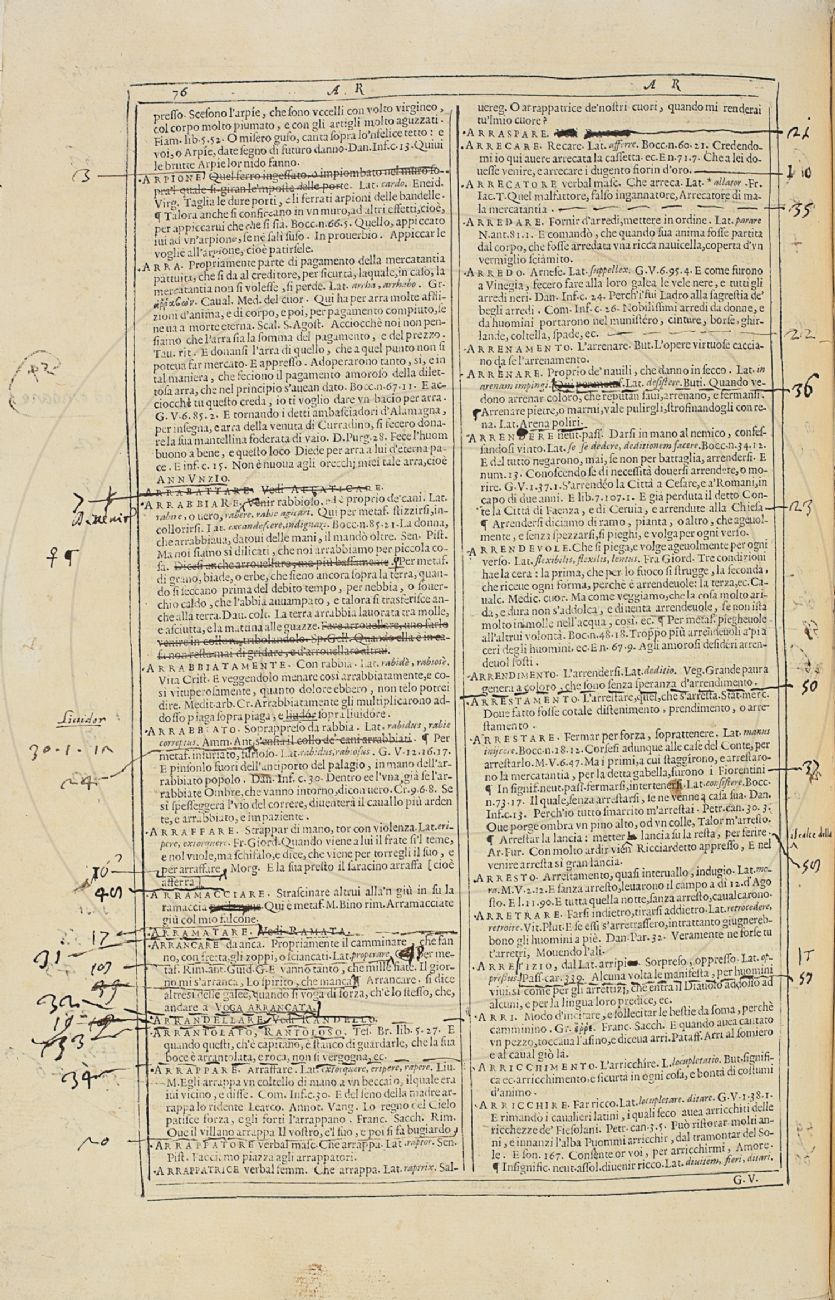 76
A R
A R
presso. Scesono l'arpie, che sono vccelli con volto virgineo,
col corpo molto piumato, e con gli artigli molto aguzzati.
Fiam. lib. 5.52. O misero guso, canta sopra lo'nfelice tetto: e
voi, o Arpie, date segno di futuro danno. Dan. Inf. c. 13. Quiui
le brutte Arpie lor nido fanno.
ARPIONE. Quel ferro ingessato, o impiombato nel muro so-
pra'l quale si giran le'mposte delle porte. Lat. cardo. Eneid.
Virg. Taglia le dure porti, e li ferrati arpioni delle bandelle.
¶ Talora anche si conficcano in vn muro, ad altri effetti, cioè,
per appiccarui che che si sia. Bocc. n. 66. 5. Quello, appiccato
iui ad vn'arpione, se ne salì suso. In prouerbio. Appiccar le
voglie all'arpione, cioè patirsele.
ARRA. Propriamente parte di pagamento della mercatantia
pattuita, che si dà al creditore, per sicurtà, laquale, in caso, la
mercatantia non si volesse, si perde. Lat. arrha, arrhabo. Gr.
Caual. Med. del cuor. Qui ha per arra molte affli-
zioni d'anima, e di corpo, e poi, per pagamento compiuto, se
ne ua a morte eterna. Scal. S. Agost. Acciocchè noi non pen-
siamo che l'arra sia la somma del pagamento, e del prezzo.
Tau. rit. E donansi l'arra di quello, che a quel punto non si
poteua far mercato. E appresso. Adoperarono tanto, sì, e in
tal maniera, che feciono il pagamento amoroso della dilet-
tosa arra, che nel principio s'auean dato. Bocc. n. 67. 11. E ac-
ciocchè tu questo creda, io ti voglio dare vn bacio per arra.
G. V. 6. 85. 2. E tornando i detti ambasciadori d'Alamagna,
per insegna, e arra della venuta di Curradino, si fecero dona-
re la sua mantellina foderata di vaio. D. Purg. 28. Fece l'huom
buono a bene, e questo loco Diede per arra a lui d'eterna pa-
ce. E inf. c. 15. Non è nuoua agli orecchi miei tale arra, cioè
ANNVNZIO.
ARRABATTARE. Vedi AFFATICARE.
ARRABBIARE. Venir rabbioso. è proprio de'cani. Lat.
rabire, o uero, rabere, rabie agitari. Qui per metaf. stizzirsi, in-
collorirsi. Lat. excandescere, indignari. Bocc. n. 85. 21. La donna,
che arrabbiaua, datoui delle mani, il mandò oltre. Sen. Pist.
Ma noi siamo sì dilicati, che noi arrabbiamo per piccola co-
sa. Dicesi anche arrouellare, ma più bassamente. ¶ Per metaf.
di grano, biade, o erbe, che sieno ancora sopra la terra, quan-
do si seccano prima del debito tempo, per nebbia, o souer-
chio caldo, che l'abbia auuampato, e talora si trasferisce an-
che alla terra. Dau. colt. La terra arrabbia lauorata tra molle,
e asciutta, e la mattina alle guazze. Fare arrouellare, uno farlo
venire in collora, tribolandolo. Sp. Gell. Quando ella è in ca-
sa non resta mai di gridare, e d'arrouellare altrui.
ARRABBIATAMENTE. Con rabbia. Lat. rabidè, rabiosè.
Vita Crist. E veggendolo menare così arrabbiatamente, e co-
sì vituperosamente, quanto dolore ebbero, non telo potrei
dire. Medit. arb. Cr. Arrabbiatamente gli multiplicarono ad-
dosso piaga sopra piaga, e liuidor sopra liuidore.
ARRABBIATO. Soprappreso da rabbia. Lat. rabidus, rabie
correptus. Amm. Ant. s'ensia il collo de' cani arrabbiati. ¶ Per
metaf. infuriato, furioso. Lat. rabidus, rabiosus. G. V. 12. 16. 17.
E pinsonlo fuori dell'antiporto del palagio, in mano dell'ar-
rabbiato popolo. Dan. Inf. c. 30. Dentro ee l'vna, già se l'ar-
rabbiate Ombre, che vanno intorno, dicon uero. Cr. 9. 68. Se
si spesseggerà l'vio del correre, diuenterà il cauallo più arden
te, e arrabbiato, e impaziente.
ARRAFFARE. Strappar di mano, tor con violenza. Lat. eri-
pere, extorquere. Fr. Giord. Quando viene a lui il frate sì'l teme,
e nol vuole, ma schifalo, e dice, che viene per torregli il suo, e
per arraffare. Morg. E la sua presto il saracino arraffa [cioè
afferra]
ARRAMACCIARE. Strascinare altrui alla'n giù in su la
ramaccia Qui è metaf. M. Bino rim. Arramacciate
giù col mio falcone.
ARRAMATARE. Vedi RAMATA.
ARRANCARE da anca. Propriamente il camminare, che fan
no, con fretta, gli zoppi, o sciancati. Lat. properare. Per me-
taf. Rim. ant. Guid. G. E vanno tanto, che mille fiate. Il gior-
no mi s'arranca, Lo spirito, che manca ¶ Arrancare. si dice
altresì delle galee, quando si voga di forza, ch'è lo stesso, che,
andare a VOGA ARRANCATA.
ARRANDELLARE. Vedi RANDELLO.
ARRANTOLATO, RANTOLOSO. Tes. Br. lib. 5. 27. E
quando questi, ch'è capitano, è stanco di guardarle, che la sua
boce è arrantolata, e roca, non si vergogna, ec.
ARRAPPARE. Arraffare. Lat. extorquere, eripere, rapere. Liu.
M. Egli arrappa vn coltello di mano a vn beccaio, ilquale era
iui vicino, e disse. Com. Inf. c. 30. E del seno della madre ar-
rappa lo ridente Learco. Annot. Vang. Lo regno del Cielo
patisce forza, e gli forti l'arrappano. Franc. Sacch. Rim.
Que il villano arrappa Il vostro, e'l suo, e poi si fa bugiardo
ARRAPPATORE verbal masc. Che arrappa. Lat. raptor. Sen.
Pist. Facci mo piazza agli arrappatori.
ARRAPPATRICE verbal femm. Che arrappa. Lat. raptrix. Sal-
uereg. O arrappatrice de'nostri cuori, quando mi renderai
tu'lmio cuore?
ARRASPARE.
ARRECARE. Recare. Lat. afferre. Bocc. n. 60. 21. Credendo-
mi io qui auere arrecata la cassetta. ec. E n. 71. 7. Che a lei do-
uesse venire, e arrecare i dugento fiorin d'oro.
ARRECATORE verbal masc. Che arreca. Lat. * allator. Fr.
Iac. T. Quel malfattore, falso ingannatore, Arrecatore di ma-
la mercatantia.
ARREDARE. Fornir d'arredi, mettere in ordine. Lat. parare
N. ant. 81. 1. E comandò, che quando sua anima fosse partita
dal corpo, che fosse arredata vna ricca nauicella, coperta d'vn
vermiglio sciàmito.
ARREDO. Arnese. Lat. suppellex. G. V. 6. 95. 4. E come furono
a Vinegia, fecero fare alla loro galea le vele nere, e tutti gli
arredi neri. Dan. Inf. c. 24. Perch'i'fui Ladro alla sagrestia de'
begli arredi. Com. Inf. c. 26. Nobilissimi arredi da donne, e
da huomini portarono nel munistéro, cinture, borse, ghir-
lande, coltella, spade, ec.
ARRENAMENTO. L'arrenare. But. L'opere virtuose caccia-
no da se l'arrenamento.
ARRENARE. Proprio de' nauili, che danno in secco. Lat. in
arenam impingi. Lat. desistere. Buti. Quando ve-
dono arrenar coloro, che reputan saui, arrenano, e fermansi.
¶ Arrenare pietre, o marmi, vale pulirgli, strofinandogli con re-
na. Lat. Arena poliri.
ARRENDERE neut. pass. Darsi in mano al nemico, confes-
sandosi vinto. Lat. se se dedere, deditionem facere. Bocc. n. 34. 12.
E del tutto negarono, mai, se non per battaglia, arrendersi. E
num. 13. Conoscendo se di necessità douersi arrendere, o mo-
rire. G. V. 1. 37. 1. S'arrendèo la Città a Cesare, e a'Romani, in
capo di due anni. E lib. 7. 107. 1. E già perduta il detto Con-
te la Città di Faenza, e di Ceruia, e arrendute alla Chiesa
¶ Arrendersi diciamo di ramo, pianta, o altro, che ageuol-
mente, e senza spezzarsi, si pieghi, e volga per ogni verso.
ARRENDEVOLE. Che si piega, e volge ageuolmente per ogni
verso. Lat. flexibilis, flexilis, lentus. Fra Giord. Tre condizioni
hae la cera: la prima, che per lo fuoco si strugge, la seconda,
che riceue ogni forma, perchè è arrendeuole: la terza, ec. Ca-
ualc. Medic. cuor. Ma come veggiamo, che la cosa molto ari-
da, e dura non s'addolca, e diuenta arrendeuole, se non ista
molto in molle nell'acqua, così. ec. ¶ Per metaf. pieghevole
all'altrui volontà. Bocc. n. 48. 18. Troppo più arrendeuoli a'pia
ceri degli huomini. ec. E n. 67. 9. Agli amorosi desidéri arren-
deuol fosti.
ARRENDIMENTO. L'arrendersi. Lat. deditio. Veg. Grande paura
genera a coloro, che sono senza speranza d'arrendimento.
ARRESTAMENTO. L'arrestare, quel, che s'arresta. Stat. merc.
Doue fatto fosse cotale distenimento, prendimento, o arre-
stamento.
ARRESTARE. Fermar per forza, soprattenere. Lat. manus
inijcere. Bocc. n. 18. 12. Corsesi adunque alle case del Conte, per
arrestarlo. M. V. 6. 47. Ma i primi, a cui staggirono, e arrestaro-
no la mercatantia, per la detta gabella, furono i Fiorentini
¶ In signif. neut. pass. fermarsi, intertenersi. Lat. consistere. Bocc.
n. 73. 17. Il quale, senza arrestarsi, se ne venne a casa sua. Dan.
Inf. c. 13. Perch'io tutto smarrito m'arrestai. Petr. can. 30. 3.
Oue porge ombra vn pino alto, od vn colle, Talor m'arresto.
¶ Arrestar la lancia: metter la lancia su la resta, per ferire
Ar. Fur. Con molto ardir vien Ricciardetto appresso, E nel
venire arresta sì gran lancia.
ARRESTO. Arrestamento, quasi interuallo, indugio. Lat. mo-
ra. M. V. 2. 12. E sanza arresto, leuarono il campo a dì 12. d'Ago
sto. E l. 11. 90. E tutta quella notte, sanza arresto, caualcarono.
ARRETRARE. Farsi indietro, tirarsi addietro. Lat. retrocedere,
retroire. Vit. Plut. E se essi s'arretrassero, intrattanto giugnereb-
bono gli huomini a piè. Dan. Par. 32. Veramente ne forse tu
t'arretri, Mouendo l'ali.
ARRETTIZIO, dal Lat. Sorpreso, oppresso. Lat. op-
pressus. Pass. car. 339. Alcuna volta le manifesta, per huomini
viui, sì come per gli arrettizi, che entra il Diauolo addosso ad
alcuni, e per la lingua loro predice, ec.
ARRI. Modo d'incitare, e sollecitar le bestie da soma, perchè
camminino. Gr. Franc. Sacch. E quando auea cantato
vn pezzo, toccaua l'asino, e diceua arri. Pataff. Arri al somiero
e al caual giò là.
ARRICCHIMENTO. L'arricchire. L. locupletatio. But. signifi-
ca ec. arricchimento: e sicurtà in ogni cosa, e bontà di costumi
d'animo.
ARRICCHIRE. Far ricco. Lat. locupletare, ditare. G. V. 1. 38. 1.
E rimando i caualieri latini, i quali seco auea arricchiti delle
ricchezze de' Fiesolani. Petr. can. 3. 5. Può ristorar molti an-
ni, e innanzi l'alba Puommi arricchir, dal tramontar del So-
le. E son. 167. Consente or voi, per arricchirmi, Amore.
¶ In signific. neut. assol. diuenir ricco. Lat. diuitem, fieri, ditari.
G. V.
3
42
7
♀ ¶
Liuidor
30. 1. 12
17
31
32
33
34
22
36
23
50
37